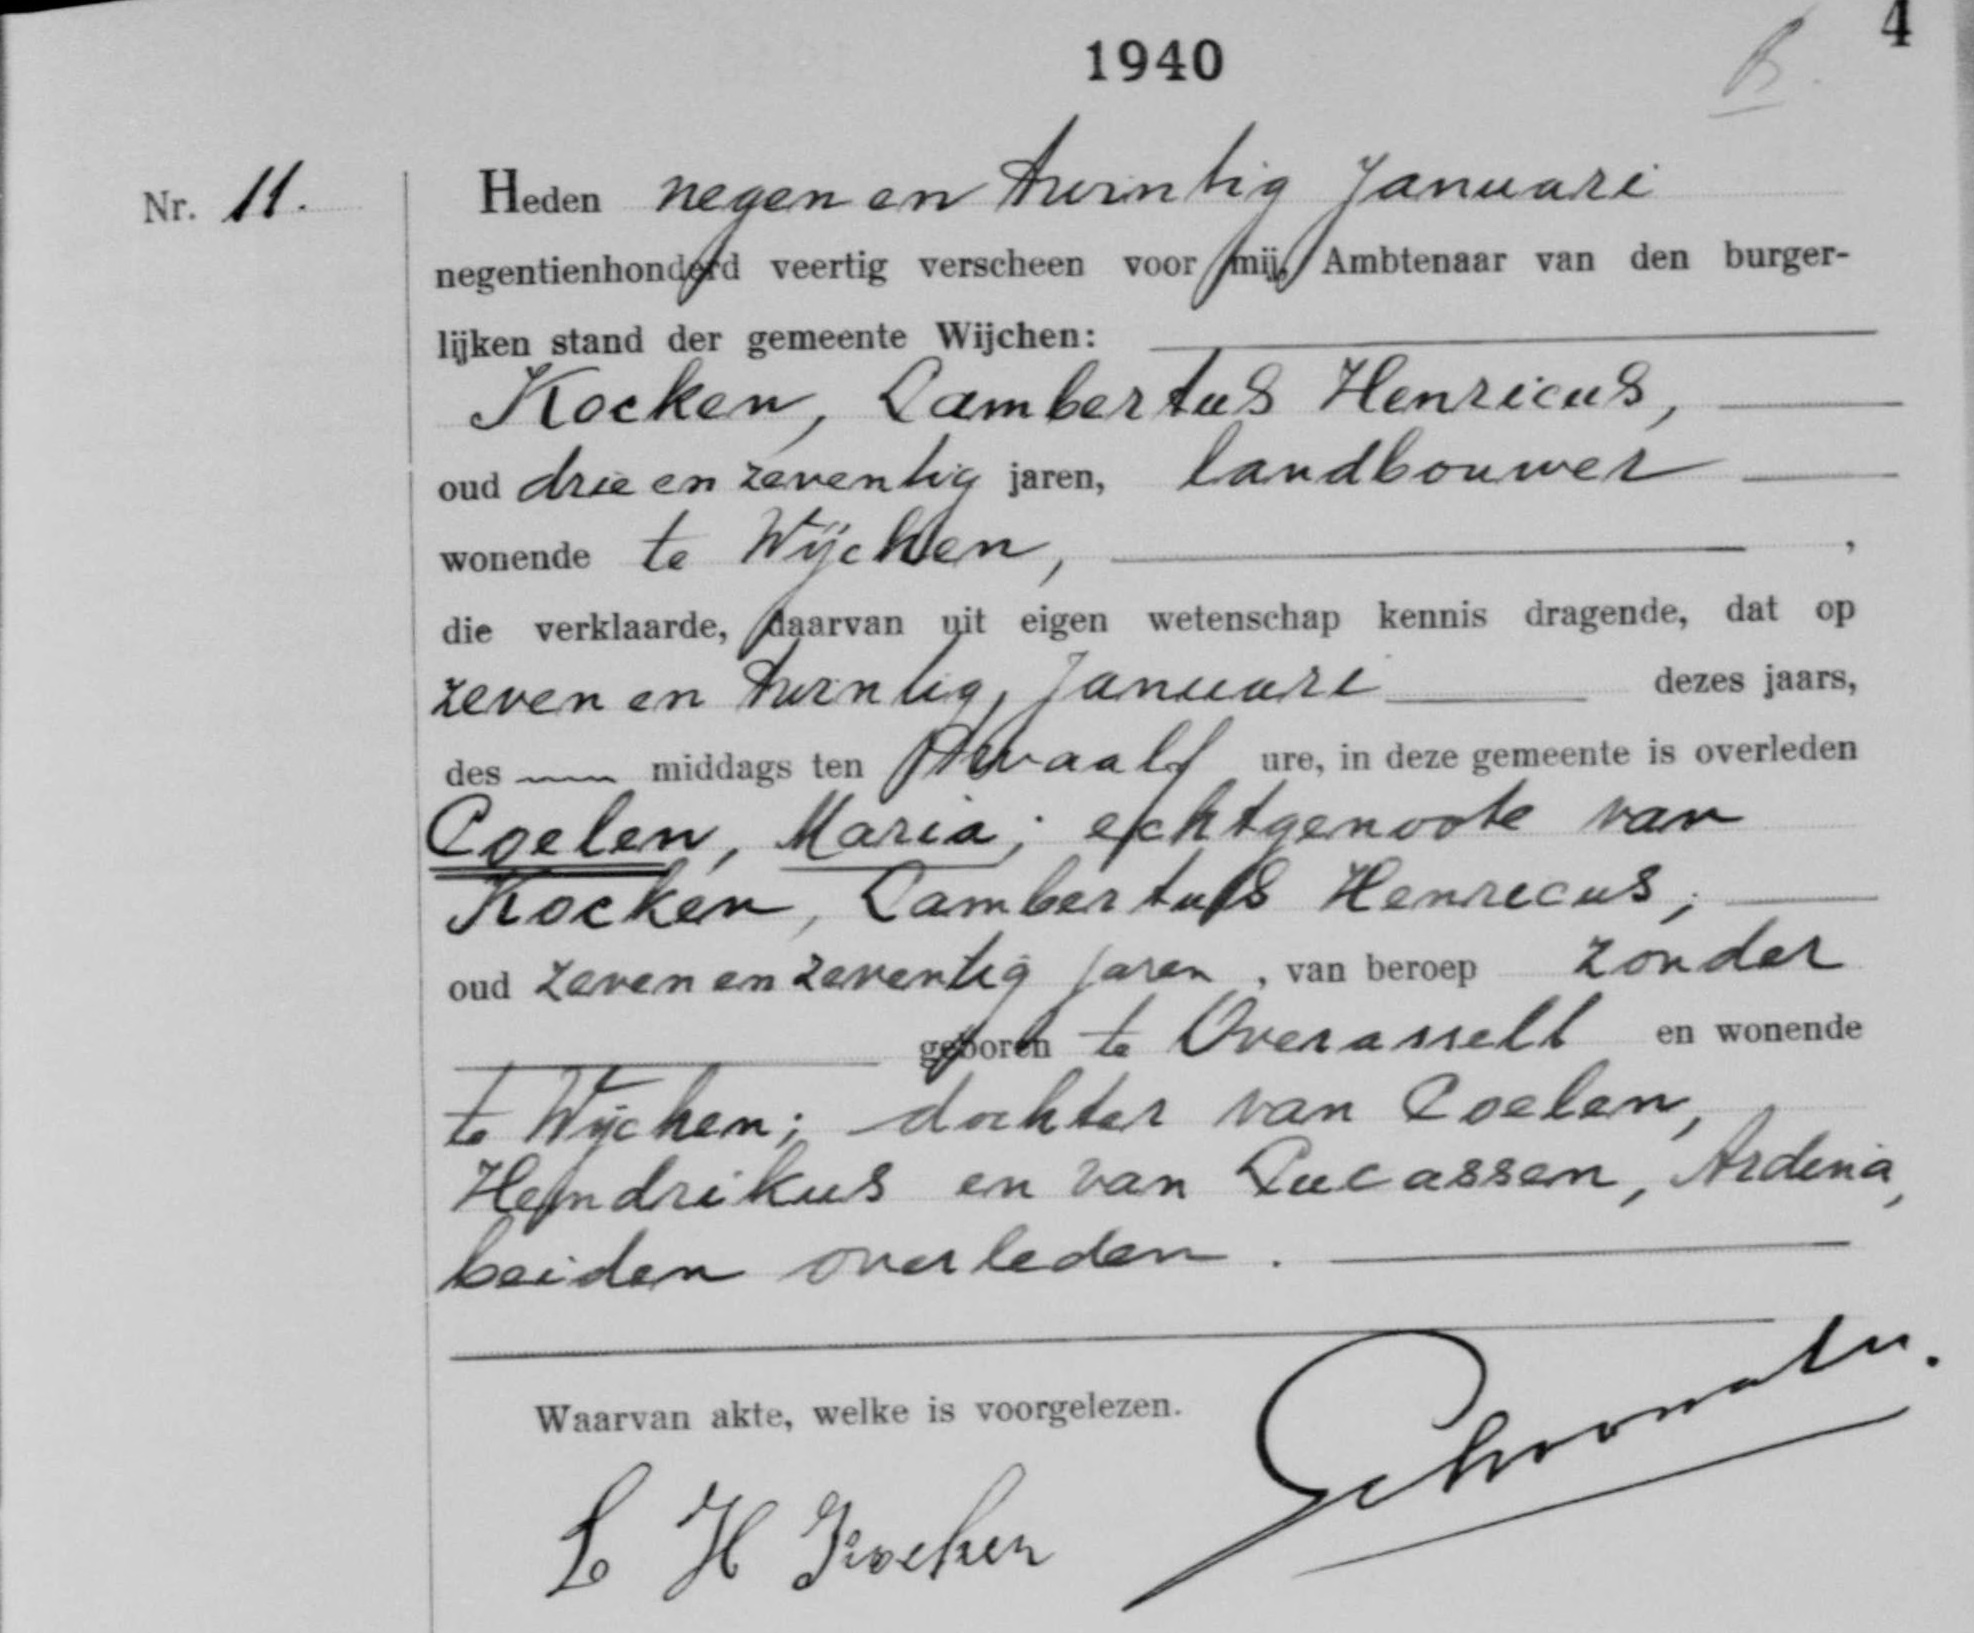 1940
4
B.
Nr. 11.
Heden negen en twintig Januari
negentienhonderd veertig verscheen voor mij, Ambtenaar van den burger-
lijken stand der gemeente Wijchen:
Kocken, Lambertus Henricus,
oud drie en zeventig jaren, landbouwer
wonende te Wijchen, ,
die verklaarde, daarvan uit eigen wetenschap kennis dragende, dat op
zeven en twintig, Januari dezes jaars,
des middags ten twaalf ure, in deze gemeente is overleden
Coelen, Maria; echtgenoote van
Kocken, Lambertus Henricus,
oud zeven en zeventig jaren, van beroep zonder
geboren te Overasselt en wonende
te Wijchen; dochter van Coelen,
Hendrikus en van Lucassen, Ardina,
beiden overleden.
Waarvan akte, welke is voorgelezen.
L H Kocken